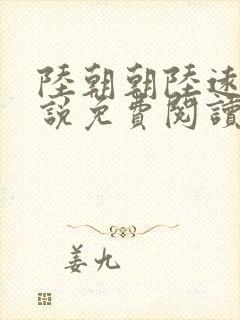 陸朝朝陸遠
說免費閱讀
姜九